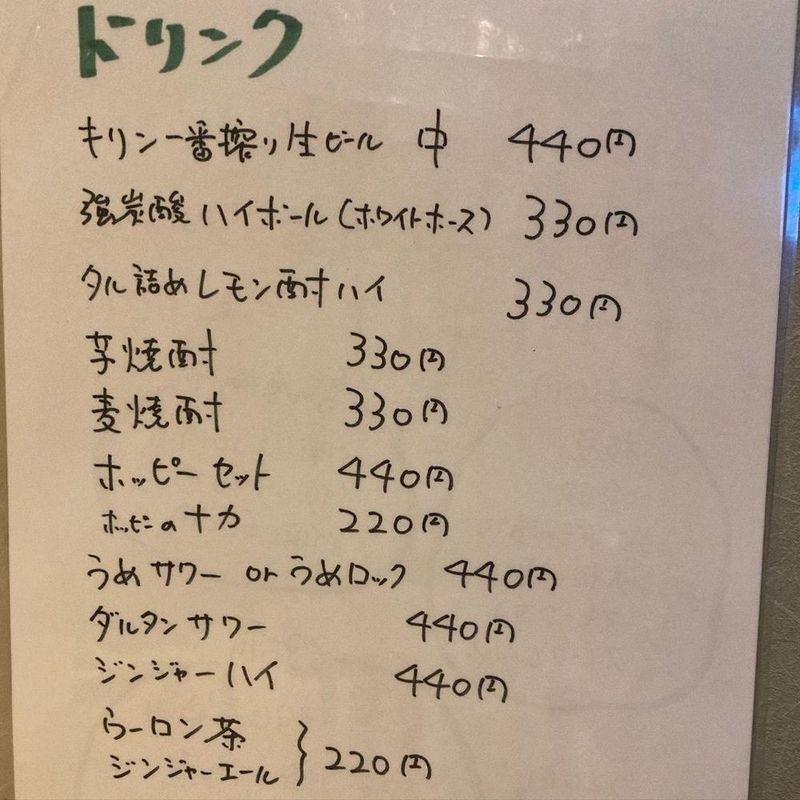 ドリンク
キリン一番搾り生ビール 中 440円
強炭酸ハイボール(ホワイトホース) 330円
タル詰めレモン酎ハイ 330円
芋焼酎 330円
麦焼酎 330円
ホッピーセット 440円
ホッピーのナカ 220円
うめサワー or うめロック 440円
ダルタンサワー 440円
ジンジャーハイ 440円
ウーロン茶
ジンジャーエール } 220円